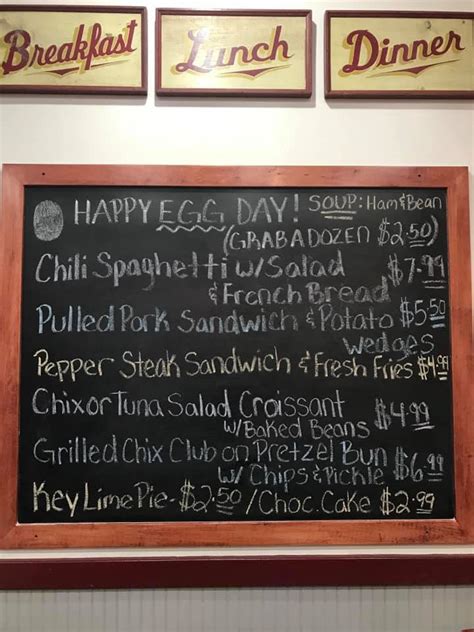 Breakfast Lunch Dinner
HAPPY EGG DAY! SOUP: Ham & Bean
(GRAB A DOZEN $2.50)
Chili Spaghetti w/ Salad $7.99
& French Bread
Pulled Pork Sandwich & Potato $5.50
wedges
Pepper Steak Sandwich & Fresh Fries $4.99
Chix or Tuna Salad Croissant
w/ Baked Beans $4.99
Grilled Chix Club on Pretzel Bun
w/ Chips & Pickle $6.99
Key Lime Pie - $2.50 / Choc. Cake $2.99